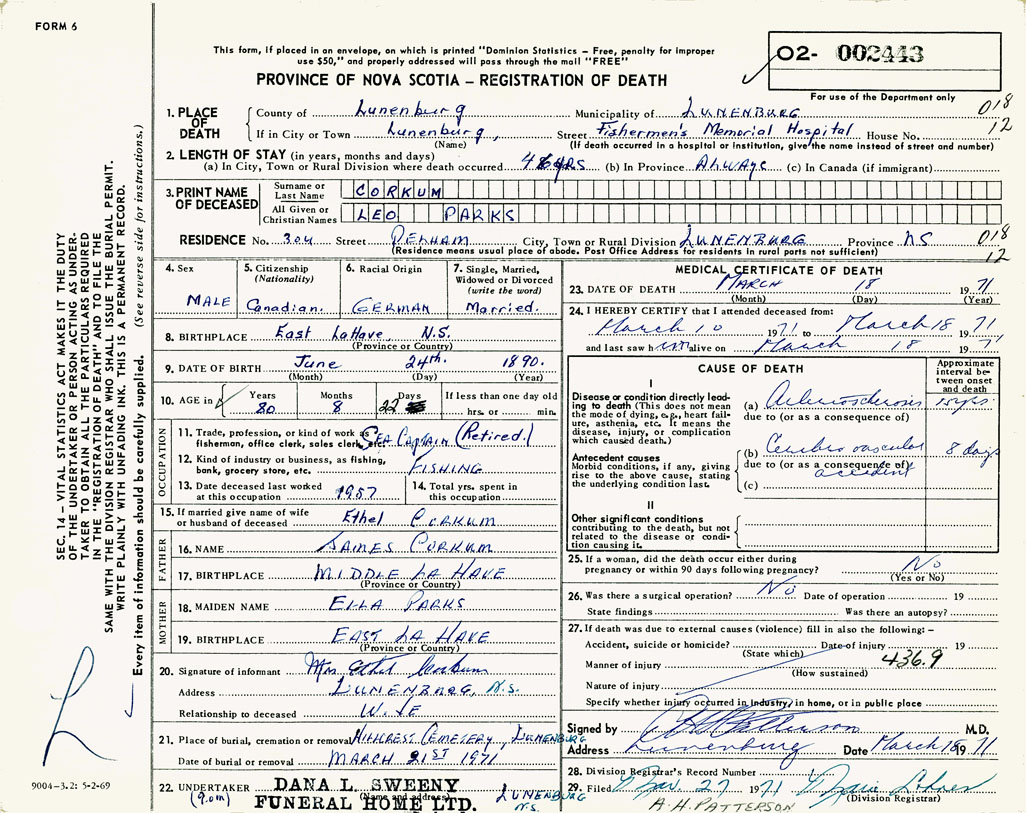 FORM 6
This form, if placed in an envelope, on which is printed "Dominion Statistics – Free, penalty for improper
use $50," and properly addressed will pass through the mail "FREE"
PROVINCE OF NOVA SCOTIA – REGISTRATION OF DEATH
02- 002443
For use of the Department only
018
12
1. PLACE OF DEATH
County of Lunenburg Municipality of LUNENBURG
If in City or Town Lunenburg, Street Fishermen's Memorial Hospital House No.
(Name) (If death occurred in a hospital or institution, give the name instead of street and number)
2. LENGTH OF STAY (in years, months and days)
(a) In City, Town or Rural Division where death occurred 46 YRS (b) In Province Always (c) In Canada (if immigrant)
3. PRINT NAME OF DECEASED
Surname or Last Name CORKUM
All Given or Christian Names LEO PARKS
RESIDENCE No. 304 Street PELHAM City, Town or Rural Division LUNENBURG Province NS
(Residence means usual place of abode. Post Office Address for residents in rural parts not sufficient)
018
12
4. Sex
MALE
5. Citizenship (Nationality)
Canadian.
6. Racial Origin
GERMAN
7. Single, Married, Widowed or Divorced (write the word)
Married.
8. BIRTHPLACE East LaHave, N.S.
(Province or Country)
9. DATE OF BIRTH June 24th. 1890.
(Month) (Day) (Year)
10. AGE in Years Months Days If less than one day old
80 8 22 hrs. or min.
OCCUPATION
11. Trade, profession, or kind of work as fisherman, office clerk, sales clerk, etc. Sea Captain (Retired.)
12. Kind of industry or business, as fishing, bank, grocery store, etc. FISHING
13. Date deceased last worked at this occupation 1957
14. Total yrs. spent in this occupation
15. If married give name of wife or husband of deceased Ethel CORKUM
FATHER
16. NAME JAMES CORKUM
17. BIRTHPLACE MIDDLE LA HAVE
(Province or Country)
MOTHER
18. MAIDEN NAME ELLA PARKS
19. BIRTHPLACE EAST LA HAVE
(Province or Country)
20. Signature of informant Mrs. Ethel Corkum
Address LUNENBURG, N.S.
Relationship to deceased WIFE
21. Place of burial, cremation or removal HILLCREST CEMETERY, LUNENBURG
Date of burial or removal MARCH 21ST 1971
22. UNDERTAKER DANA L. SWEENY
(Name and address)
FUNERAL HOME LTD.
LUNENBURG
N.S.
MEDICAL CERTIFICATE OF DEATH
23. DATE OF DEATH MARCH 18 1971
(Month) (Day) (Year)
24. I HEREBY CERTIFY that I attended deceased from:
March 10 1971 to March 18 1971
and last saw him alive on March 18 1971
CAUSE OF DEATH
Approximate interval between onset and death
I
Disease or condition directly leading to death (This does not mean the mode of dying, e.g., heart failure, asthenia, etc. It means the disease, injury, or complication which caused death.)
(a) Arteriosclerosis 15 yrs.
due to (or as a consequence of)
Antecedent causes
Morbid conditions, if any, giving rise to the above cause, stating the underlying condition last.
(b) Cerebro vascular 8 days
due to (or as a consequence of) accident
(c)
II
Other significant conditions
contributing to the death, but not related to the disease or condition causing it.
25. If a woman, did the death occur either during
pregnancy or within 90 days following pregnancy? No
(Yes or No)
26. Was there a surgical operation? No Date of operation 19
State findings Was there an autopsy?
27. If death was due to external causes (violence) fill in also the following:–
Accident, suicide or homicide? Date of injury 19
(State which)
Manner of injury 436.9
(How sustained)
Nature of injury
Specify whether injury occurred in industry, in home, or in public place
Signed by Patterson M.D.
Address Lunenburg Date March 18 1971
28. Division Registrar's Record Number
29. Filed 27 1971
(Division Registrar)
A.H. PATTERSON
SEC. 14 – VITAL STATISTICS ACT MAKES IT THE DUTY
OF THE UNDERTAKER OR PERSON ACTING AS UNDER-
TAKER TO OBTAIN ALL THE PARTICULARS REQUIRED
IN THE "REGISTRATION OF DEATH" AND TO FILE THE
SAME WITH THE DIVISION REGISTRAR WHO SHALL ISSUE THE BURIAL PERMIT.
WRITE PLAINLY WITH UNFADING INK. THIS IS A PERMANENT RECORD.
Every item of information should be carefully supplied. (See reverse side for instructions.)
9004–3.2: 5-2-69